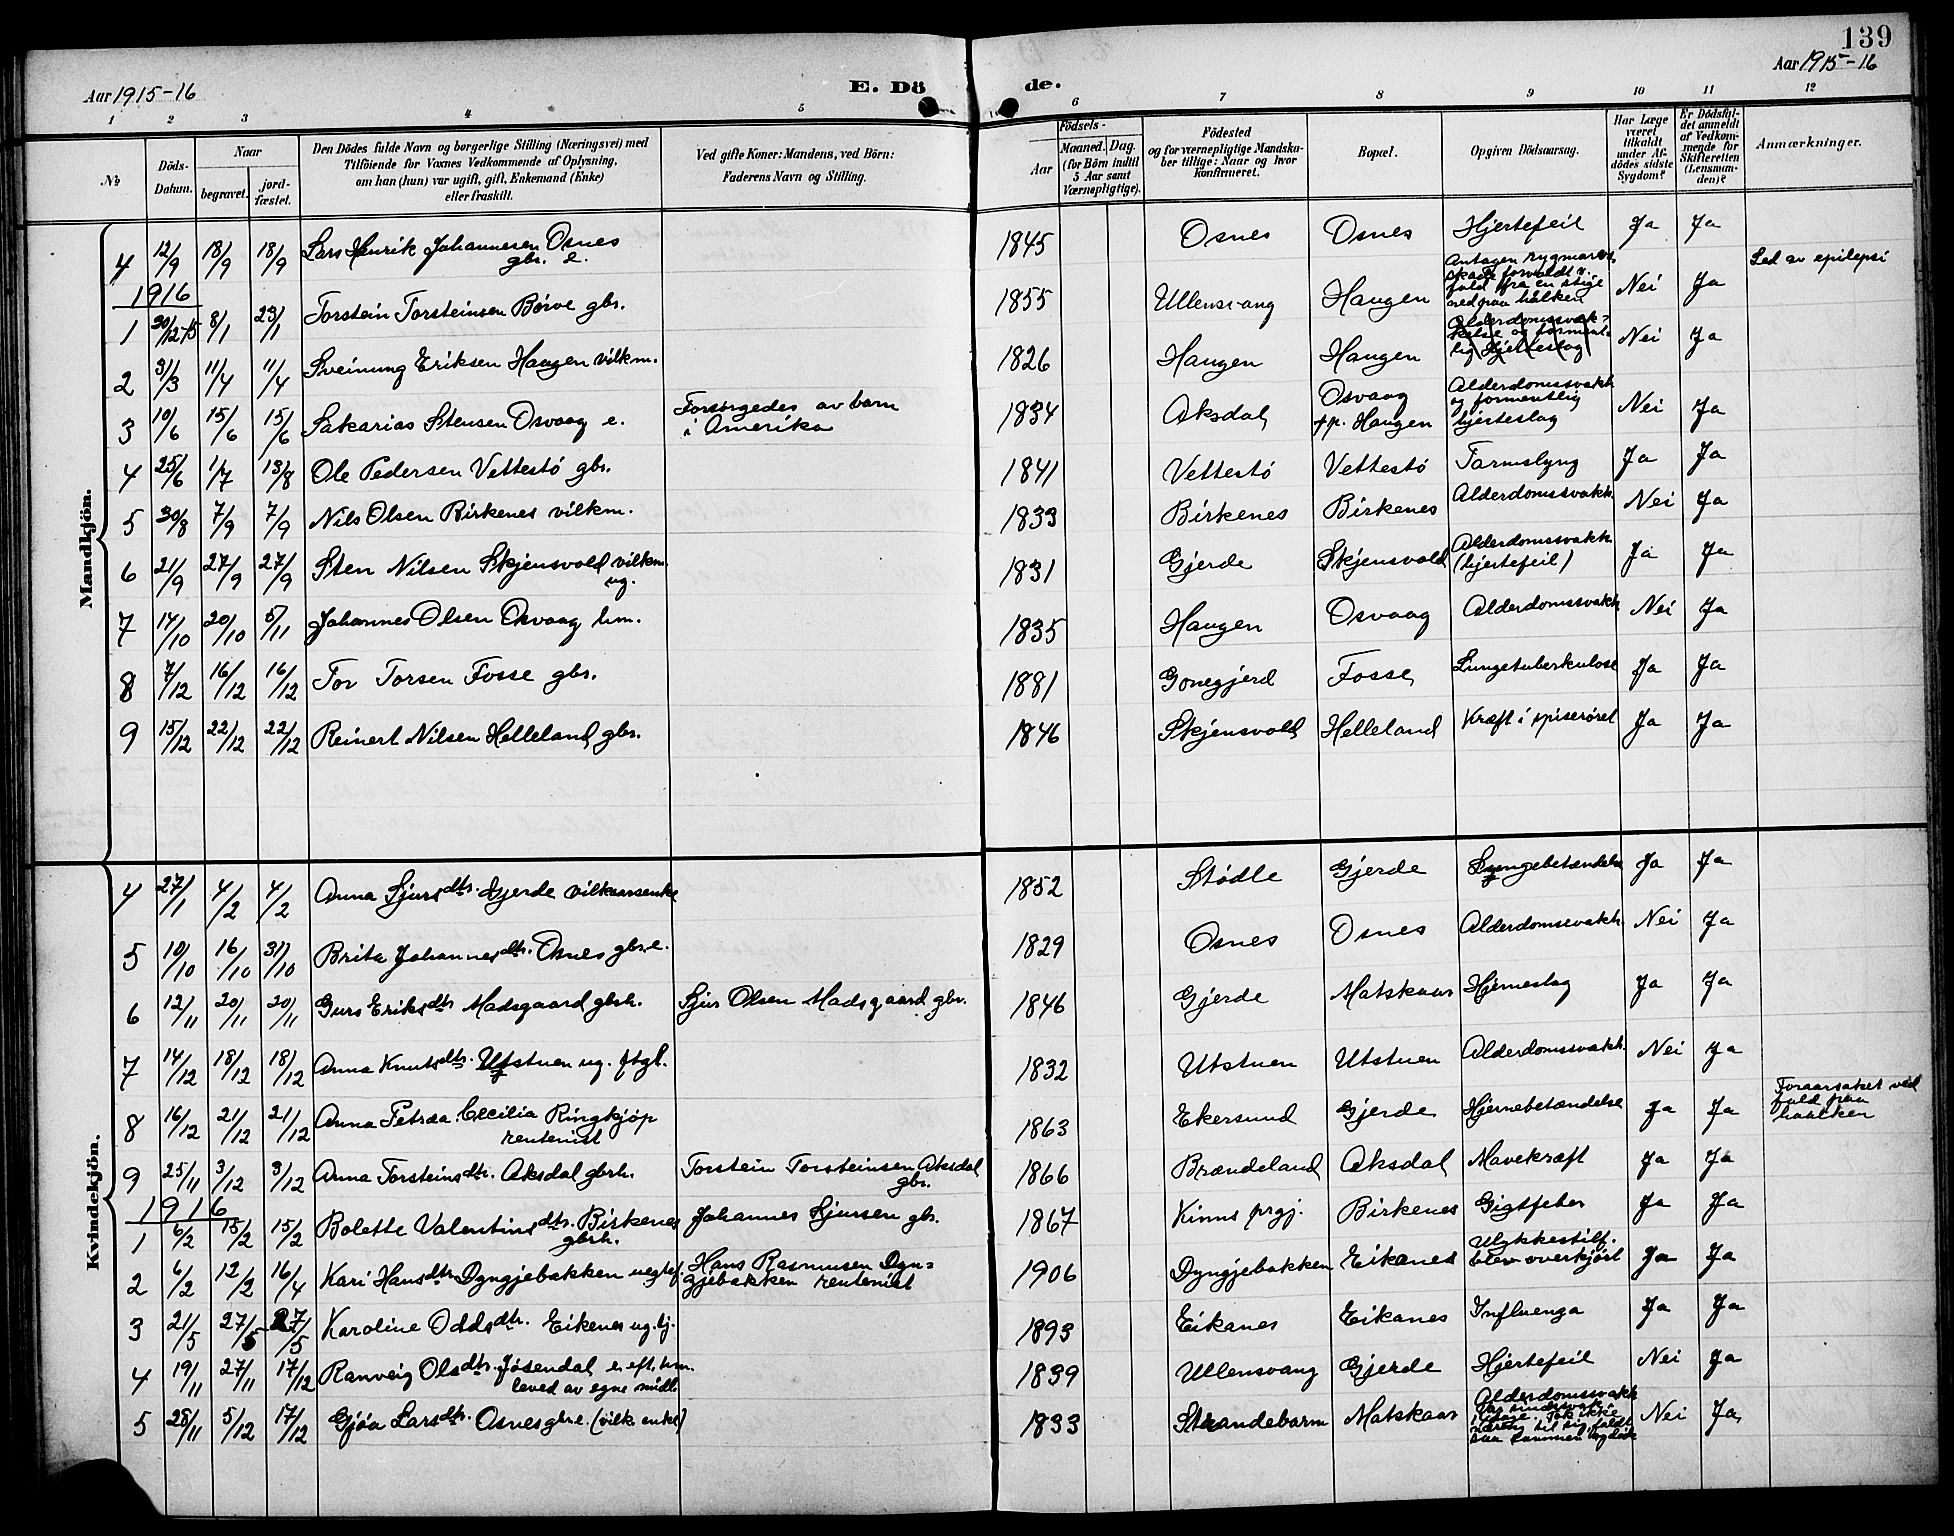 139
Aar 1915-16
E. Dö
de.
Aar 1915-16
1 2 3 4 5 6 7 8 9 10 11 12
№
Döds-Datum.
Naar
begravet.
jord-fæstet.
Den Dödes fulde Navn og borgerlige Stilling (Næringsvei) med
Tilföiende for Voxnes Vedkommende af Oplysning,
om han (hun) var ugift, gift, Enkemand (Enke)
eller fraskilt.
Ved gifte Koner: Mandens, ved Börn:
Faderens Navn og Stilling.
Födsels-
Aar
Maaned. Dag.
(for Börn indtil
5 Aar samt
Værnepligtige).
Födested
og for værnepligtige Mandska-
ber tillige: Naar og hvor
Konfirmeret.
Bopæl.
Opgiven Dödsaarsag.
Har Læge
været
tilkaldt
under Af-
dödes sidste
Sygdom?
Er Dödsfal-
det anmeldt
af Vedkom-
mende for
Skifteretten
(Lensman-
den)?
Anmærkninger.
Mandkjön.
4 12/9 18/9 18/9 Lars Henrik Johannesen Osnes gbr. e. 1845 Osnes Osnes Hjertefeil Ja Ja Led av epilepsi
1916
1 30/12-15 8/1 23/1 Torstein Torsteinsen Börve gbr. 1855 Ullensvang Haugen Antagen rygmarvs skade forvoldt v. fald fra en stige ned paa hålken Nei Ja
2 31/3 11/4 11/4 Sveinung Eriksen Haugen vilkm. 1826 Haugen Haugen Alderdomssvak-kelse og forment-lig hjerteslag Nei Ja
3 10/6 15/6 15/6 Sakarias Stensen Osvaag e. Forsørgedes av barn i Amerika 1834 Aksdal Osvaag pp. Haugen Alderdomssvakh. og formentlig hjerteslag Nei Ja
4 25/6 1/7 13/8 Ole Pedersen Vettestö gbr. 1841 Vettestö Vettestö Tarmslyng Ja Ja
5 30/8 7/9 7/9 Nils Olsen Birkenes vilkm. 1833 Birkenes Birkenes Alderdomssvakh. Nei Ja
6 21/9 27/9 27/9 Sten Nilsen Skjensvold vilkm. ug. 1831 Gjerde Skjensvold Alderdomssvakh. (hjertefeil) Ja Ja
7 14/10 20/10 5/11 Johannes Olsen Osvaag hm. 1835 Haugen Osvaag Alderdomssvakh. Nei Ja
8 7/12 16/12 16/12 Tor Torsen Fosse gbr. 1881 Gonegjerd Fosse Lungetuberkulose Ja Ja
9 15/12 22/12 22/12 Reinert Nilsen Helleland gbr. 1846 Skjensvold Helleland Kræft i spiserøret Ja Ja
Kvindekjön.
4 27/1 4/2 4/2 Anna Sjursdtr. Gjerde vilkaarsenke 1852 Stödle Gjerde Lungebetændelse Ja Ja
5 10/10 16/10 31/10 Brita Johannesdtr. Osnes gbr.e. 1829 Osnes Osnes Alderdomssvakh. Nei Ja
6 12/11 20/11 20/11 Guro Eriksdtr Madsgaard gbrh. Sjur Olsen Madsgaard gbr. 1846 Gjerde Matskaar Hjerneslag Ja Ja
7 14/12 18/12 18/12 Anna Knutsdtr. Utstuen ug. ftgl. 1832 Utstuen Utstuen Alderdomssvakh. Nei Ja
8 16/12 21/12 21/12 Anna Petræa Cecilia Ringkjöp rentenist 1863 Ekersund Gjerde Hjernebetændelse Ja Ja Foraarsaket ved fald paa haalken
9 25/11 3/12 3/12 Anna Torsteinsdtr. Aksdal gbrh. Torstein Torsteinsen Aksdal gbr. 1866 Brændeland Aksdal Mavekræft Ja Ja
1916
1 6/2 15/2 15/2 Bolette Valentinsdtr. Birkenes gbrh. Johannes Sjursen gbr. 1867 Kinns prgj. Birkenes Gigtfeber Ja Ja
2 6/2 12/2 16/4 Kari Hansdtr. Dyngjebakken Hans Rasmusen Dyn-gjebakken rentenist 1906 Dyngjebakken Eikanes Ulykkestilf. blev overkjört Ja Ja
3 21/5 27/5 27/5 Karoline Oddsdtr. Eikenes ug. tj. 1893 Eikanes Eikanes Influenga Ja Ja
4 19/11 27/11 17/12 Ranveig Olsdtr. Jösendal e. eft. hm. leved av egne midl. 1839 Ullensvang Gjerde Hjertefeil Nei Ja
5 28/11 5/12 17/12 Gjöa Larsdtr. Osnes gbr.e. (vilk. enke) 1833 Strandebarm Matskaar Alderdomssvakh. Var sindssvak Tok ikke næring til sig, faldt saa sammen og döde Nei Ja